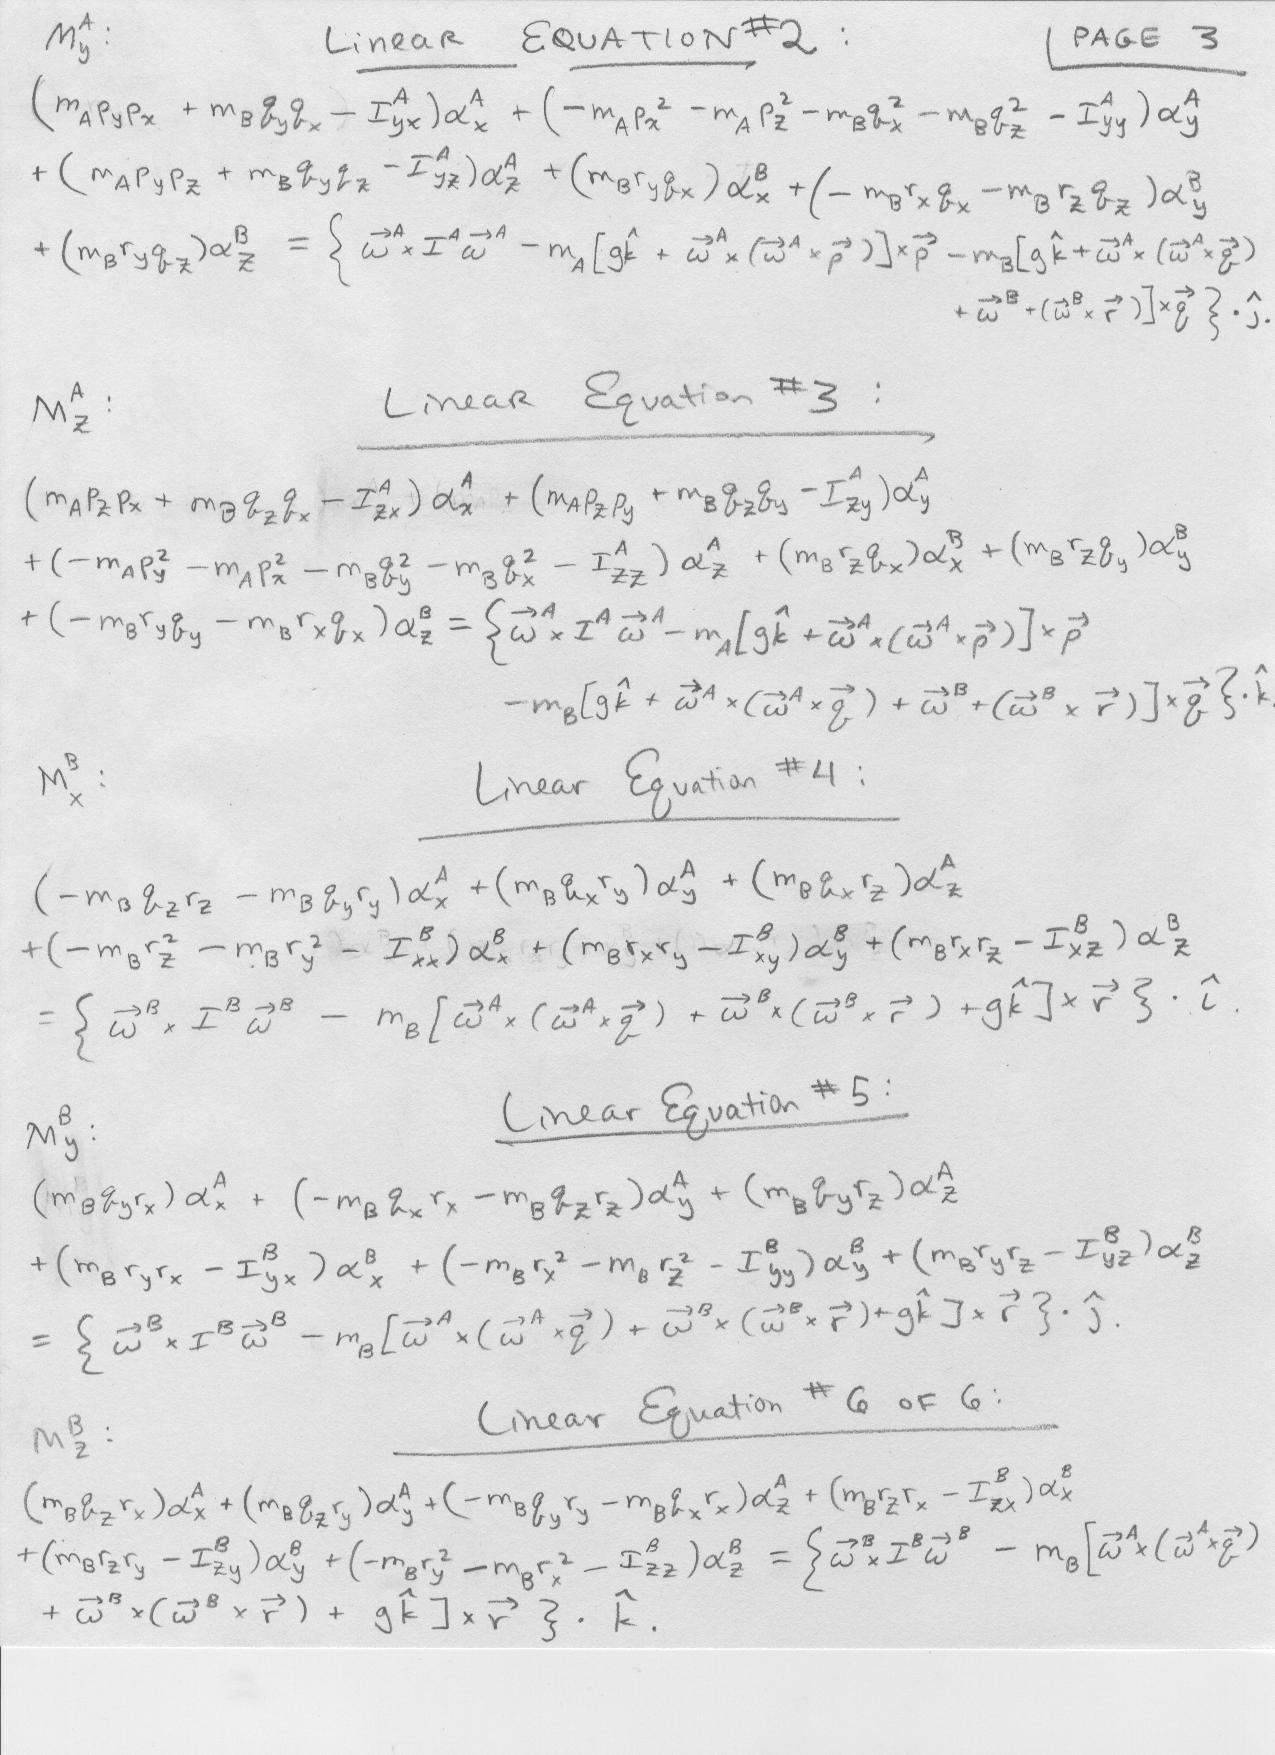 M_y^A: Linear EQUATION #2: PAGE 3
(m_A p_y p_x + m_B q_y q_x − I_yx^A) α_x^A + (−m_A p_x^2 − m_A p_z^2 − m_B q_x^2 − m_B q_z^2 − I_yy^A) α_y^A
+ (m_A p_y p_z + m_B q_y q_z − I_yz^A) α_z^A + (m_B r_y q_x) α_x^B + (−m_B r_x q_x − m_B r_z q_z) α_y^B
+ (m_B r_y q_z) α_z^B = { ω⃗^A × I^A ω⃗^A − m_A [g k̂ + ω⃗^A × (ω⃗^A × p⃗)] × p⃗ − m_B [g k̂ + ω⃗^A × (ω⃗^A × q⃗)
+ ω⃗^B + (ω⃗^B × r⃗)] × q⃗ } · ĵ.
M_z^A: Linear Equation #3:
(m_A p_z p_x + m_B q_z q_x − I_zx^A) α_x^A + (m_A p_z p_y + m_B q_z q_y − I_zy^A) α_y^A
+ (−m_A p_y^2 − m_A p_x^2 − m_B q_y^2 − m_B q_x^2 − I_zz^A) α_z^A + (m_B r_z q_x) α_x^B + (m_B r_z q_y) α_y^B
+ (−m_B r_y q_y − m_B r_x q_x) α_z^B = { ω⃗^A × I^A ω⃗^A − m_A [g k̂ + ω⃗^A × (ω⃗^A × p⃗)] × p⃗
− m_B [g k̂ + ω⃗^A × (ω⃗^A × q⃗) + ω⃗^B + (ω⃗^B × r⃗)] × q⃗ } · k̂.
M_x^B: Linear Equation #4:
(−m_B q_z r_z − m_B q_y r_y) α_x^A + (m_B q_x r_y) α_y^A + (m_B q_x r_z) α_z^A
+ (−m_B r_z^2 − m_B r_y^2 − I_xx^B) α_x^B + (m_B r_x r_y − I_xy^B) α_y^B + (m_B r_x r_z − I_xz^B) α_z^B
= { ω⃗^B × I^B ω⃗^B − m_B [ω⃗^A × (ω⃗^A × q⃗) + ω⃗^B × (ω⃗^B × r⃗) + g k̂] × r⃗ } · î.
M_y^B: Linear Equation #5:
(m_B q_y r_x) α_x^A + (−m_B q_x r_x − m_B q_z r_z) α_y^A + (m_B q_y r_z) α_z^A
+ (m_B r_y r_x − I_yx^B) α_x^B + (−m_B r_x^2 − m_B r_z^2 − I_yy^B) α_y^B + (m_B r_y r_z − I_yz^B) α_z^B
= { ω⃗^B × I^B ω⃗^B − m_B [ω⃗^A × (ω⃗^A × q⃗) + ω⃗^B × (ω⃗^B × r⃗) + g k̂] × r⃗ } · ĵ.
M_z^B: Linear Equation #6 OF 6:
(m_B q_z r_x) α_x^A + (m_B q_z r_y) α_y^A + (−m_B q_y r_y − m_B q_x r_x) α_z^A + (m_B r_z r_x − I_zx^B) α_x^B
+ (m_B r_z r_y − I_zy^B) α_y^B + (−m_B r_y^2 − m_B r_x^2 − I_zz^B) α_z^B = { ω⃗^B × I^B ω⃗^B − m_B [ω⃗^A × (ω⃗^A × q⃗)
+ ω⃗^B × (ω⃗^B × r⃗) + g k̂] × r⃗ } · k̂.